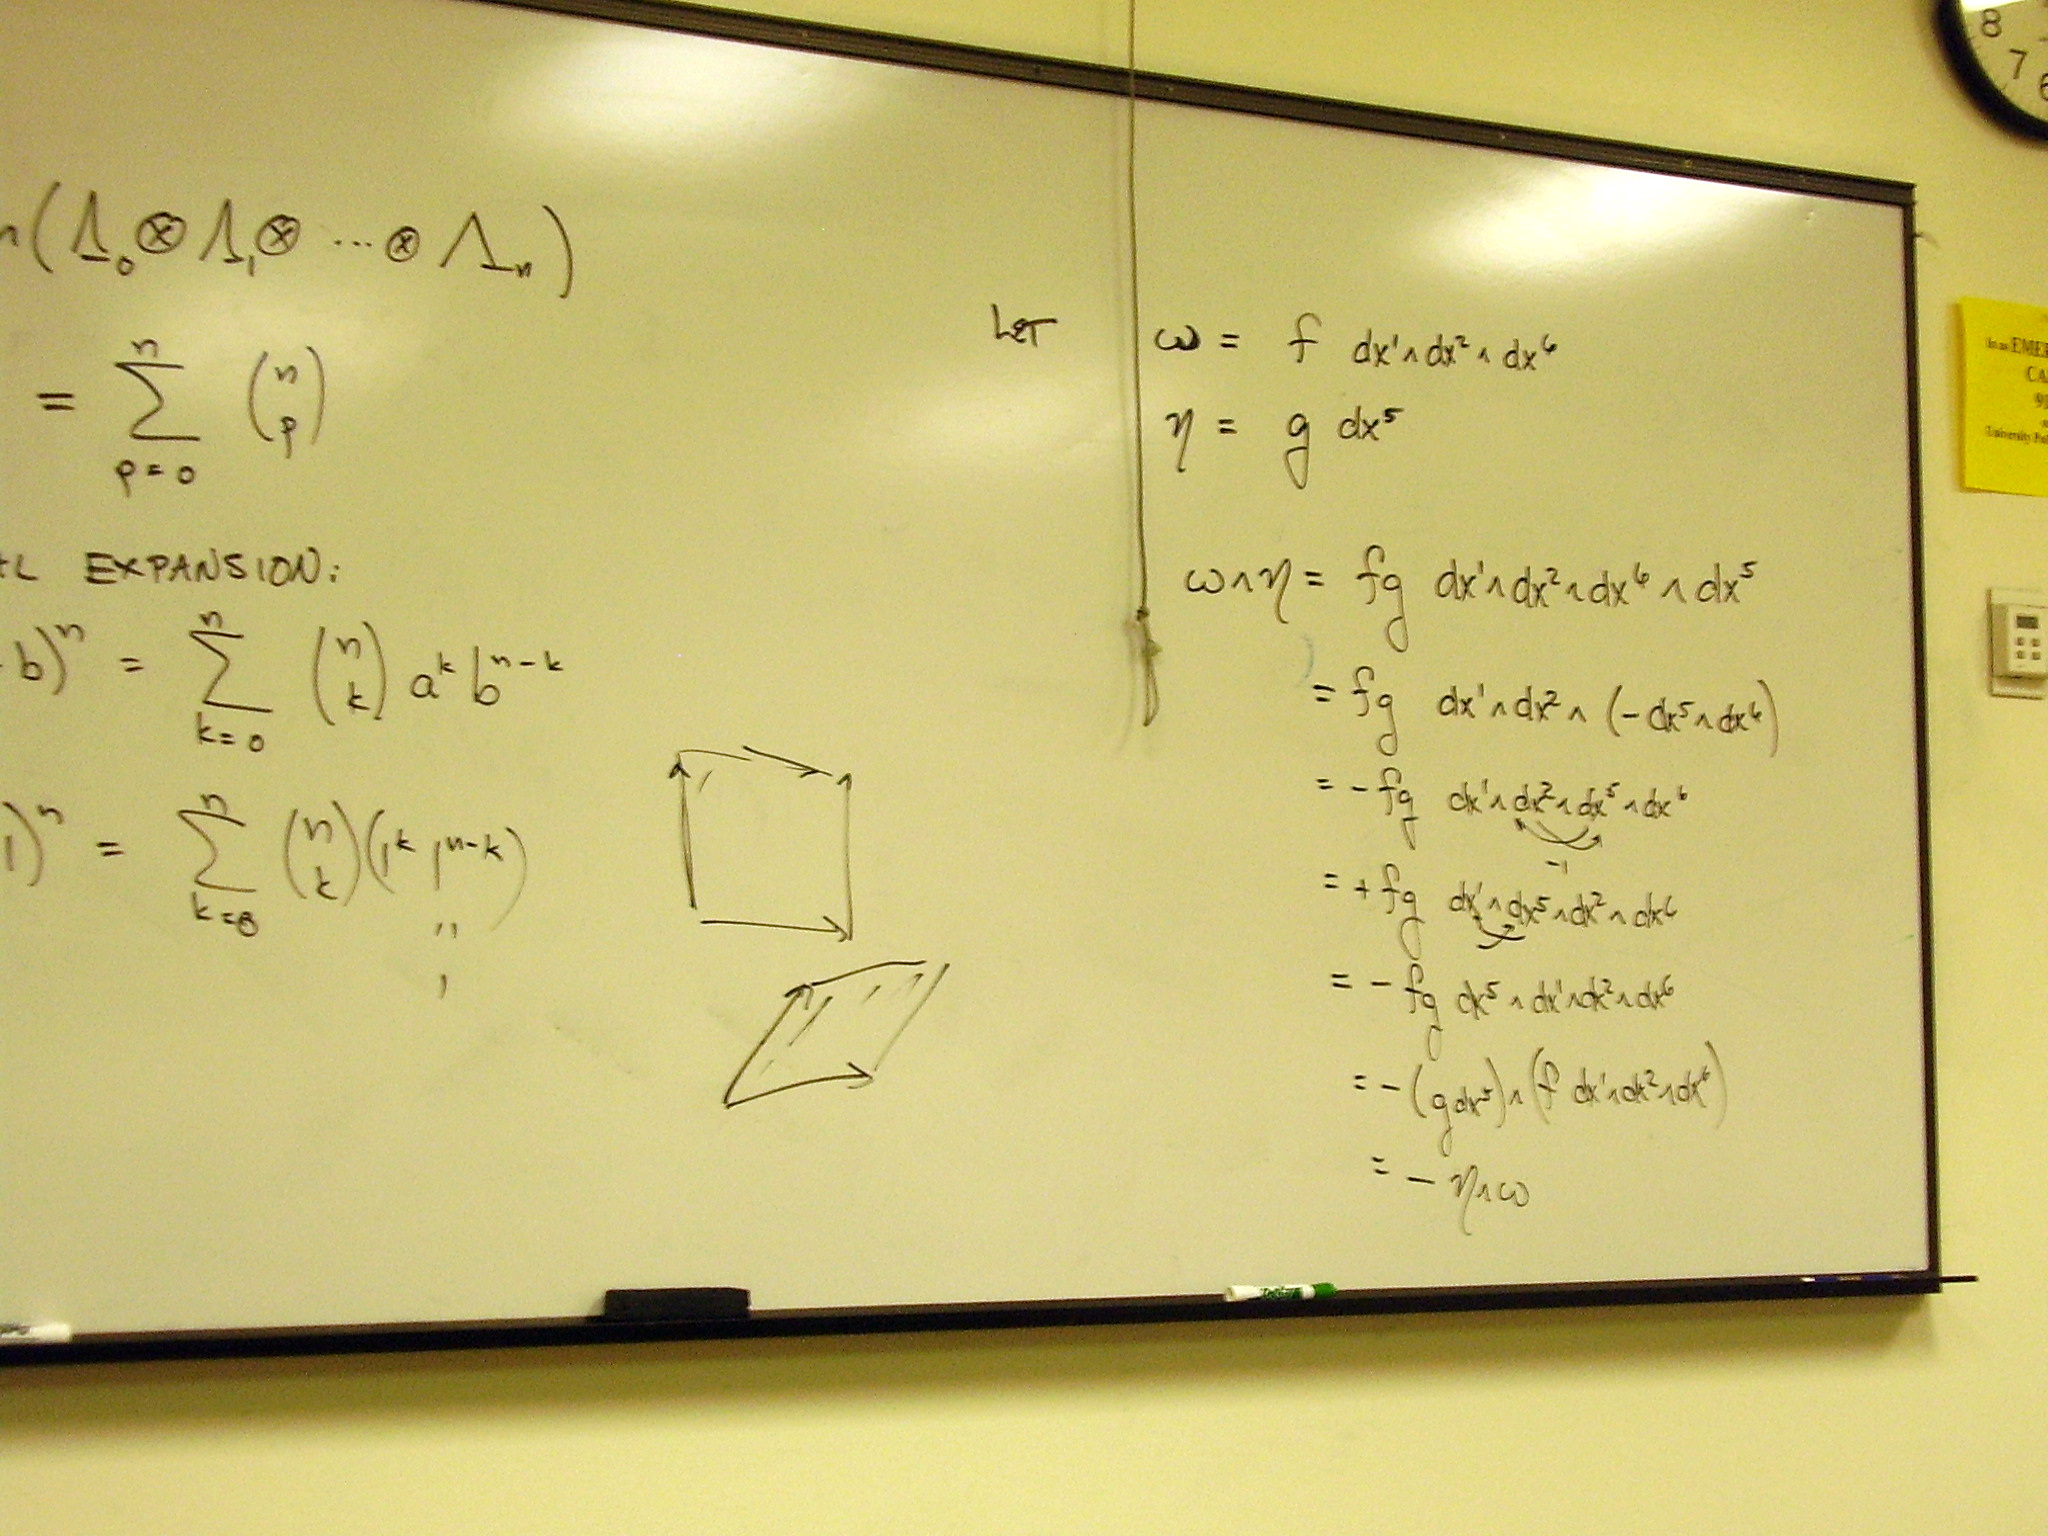 n(Λ₀⊗Λ₁⊗ ... ⊗ Λₙ)
= ∑ₚ₌₀ⁿ (n p)
AL EXPANSION:
b)ⁿ = ∑ₖ₌₀ⁿ (n k) aᵏ bⁿ⁻ᵏ
1)ⁿ = ∑ₖ₌₀ⁿ (n k)(1ᵏ 1ⁿ⁻ᵏ)
"
1
LET ω = f dx¹∧dx²∧dx⁶
η = g dx⁵
ω∧η = fg dx¹∧dx²∧dx⁶∧dx⁵
= fg dx¹∧dx²∧(-dx⁵∧dx⁶)
= -fg dx¹∧dx²∧dx⁵∧dx⁶
-1
= +fg dx¹∧dx⁵∧dx²∧dx⁶
= -fg dx⁵∧dx¹∧dx²∧dx⁶
= -(g dx⁵)∧(f dx¹∧dx²∧dx⁶)
= -η∧ω
8
7
6
In an EMER
CA
91
University Pol